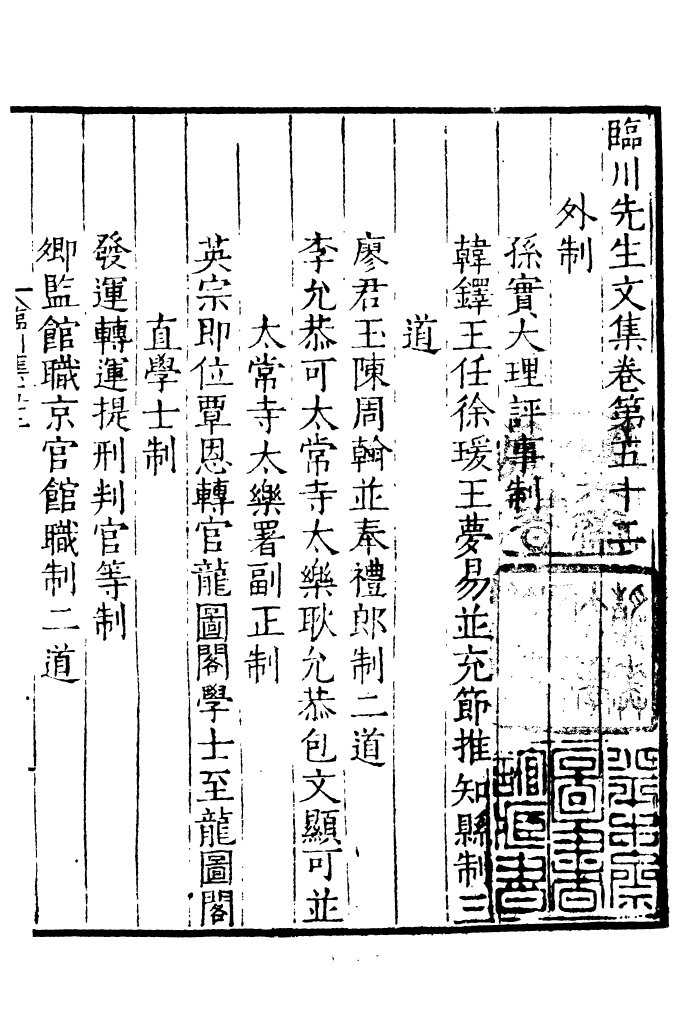 臨川先生文集卷第五十三
外制
孫實大理評事制
韓鐸王任徐瑗王夢易並充節推知縣制三
道
廖君玉陳周翰並奉禮郎制二道
李允恭可太常寺太樂耿允恭包文顯可並
太常寺太樂署副正制
英宗即位覃恩轉官龍圖閣學士至龍圖閣
直學士制
發運轉運提刑判官等制
卿監館職京官館職制二道